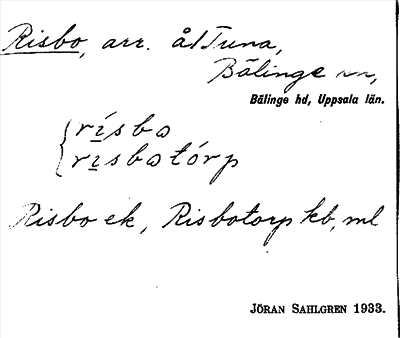 Risbo, arr. åt Tuna,
Bälinge sn,
Bälinge hd, Uppsala län.
rísbo
risbotórp
Risbo ek, Risbotorp kb, ml
JÖRAN SAHLGREN 1933.